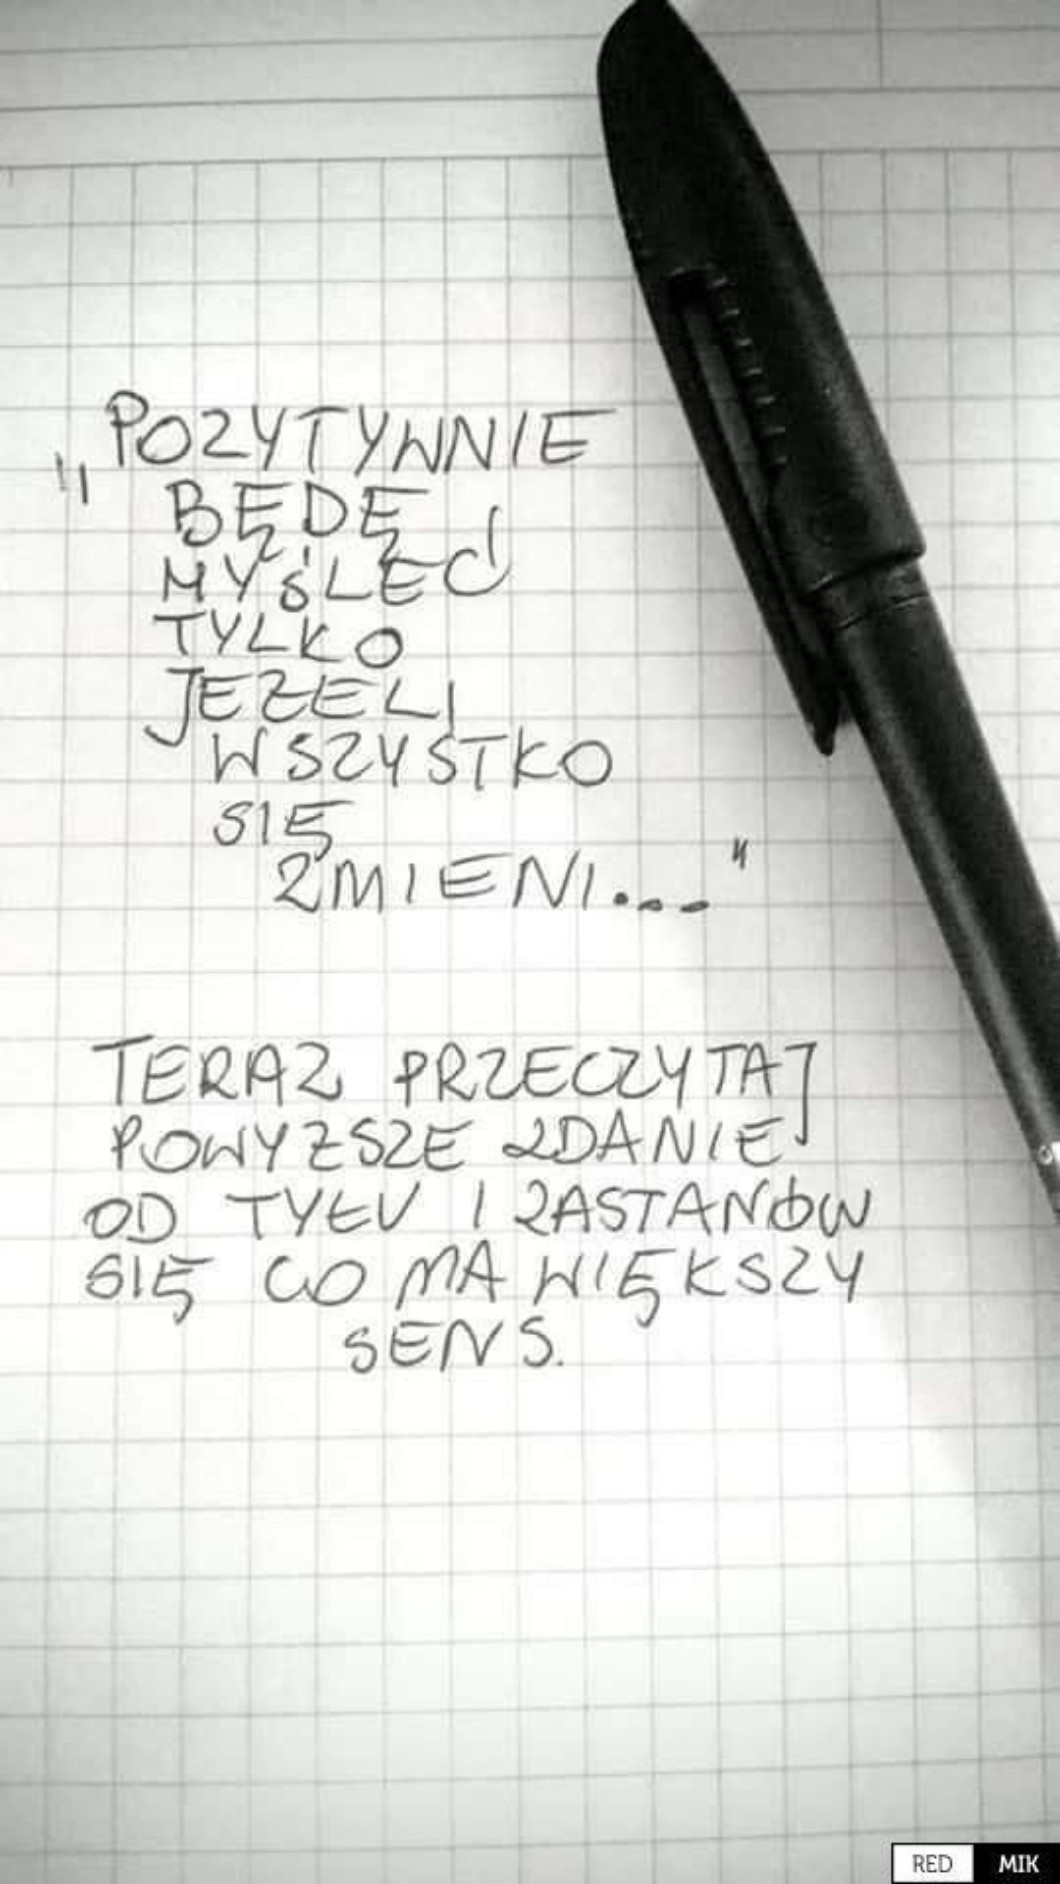 „POZYTYWNIE
BĘDĘ
MYŚLEĆ
TYLKO
JEZELI
WSZYSTKO
SIĘ
ZMIENI..."
TERAZ PRZECZYTAJ
POWYZSZE ZDANIE
OD TYŁU I ZASTANÓW
SIĘ CO MA WIĘKSZY
SENS.
RED MIK